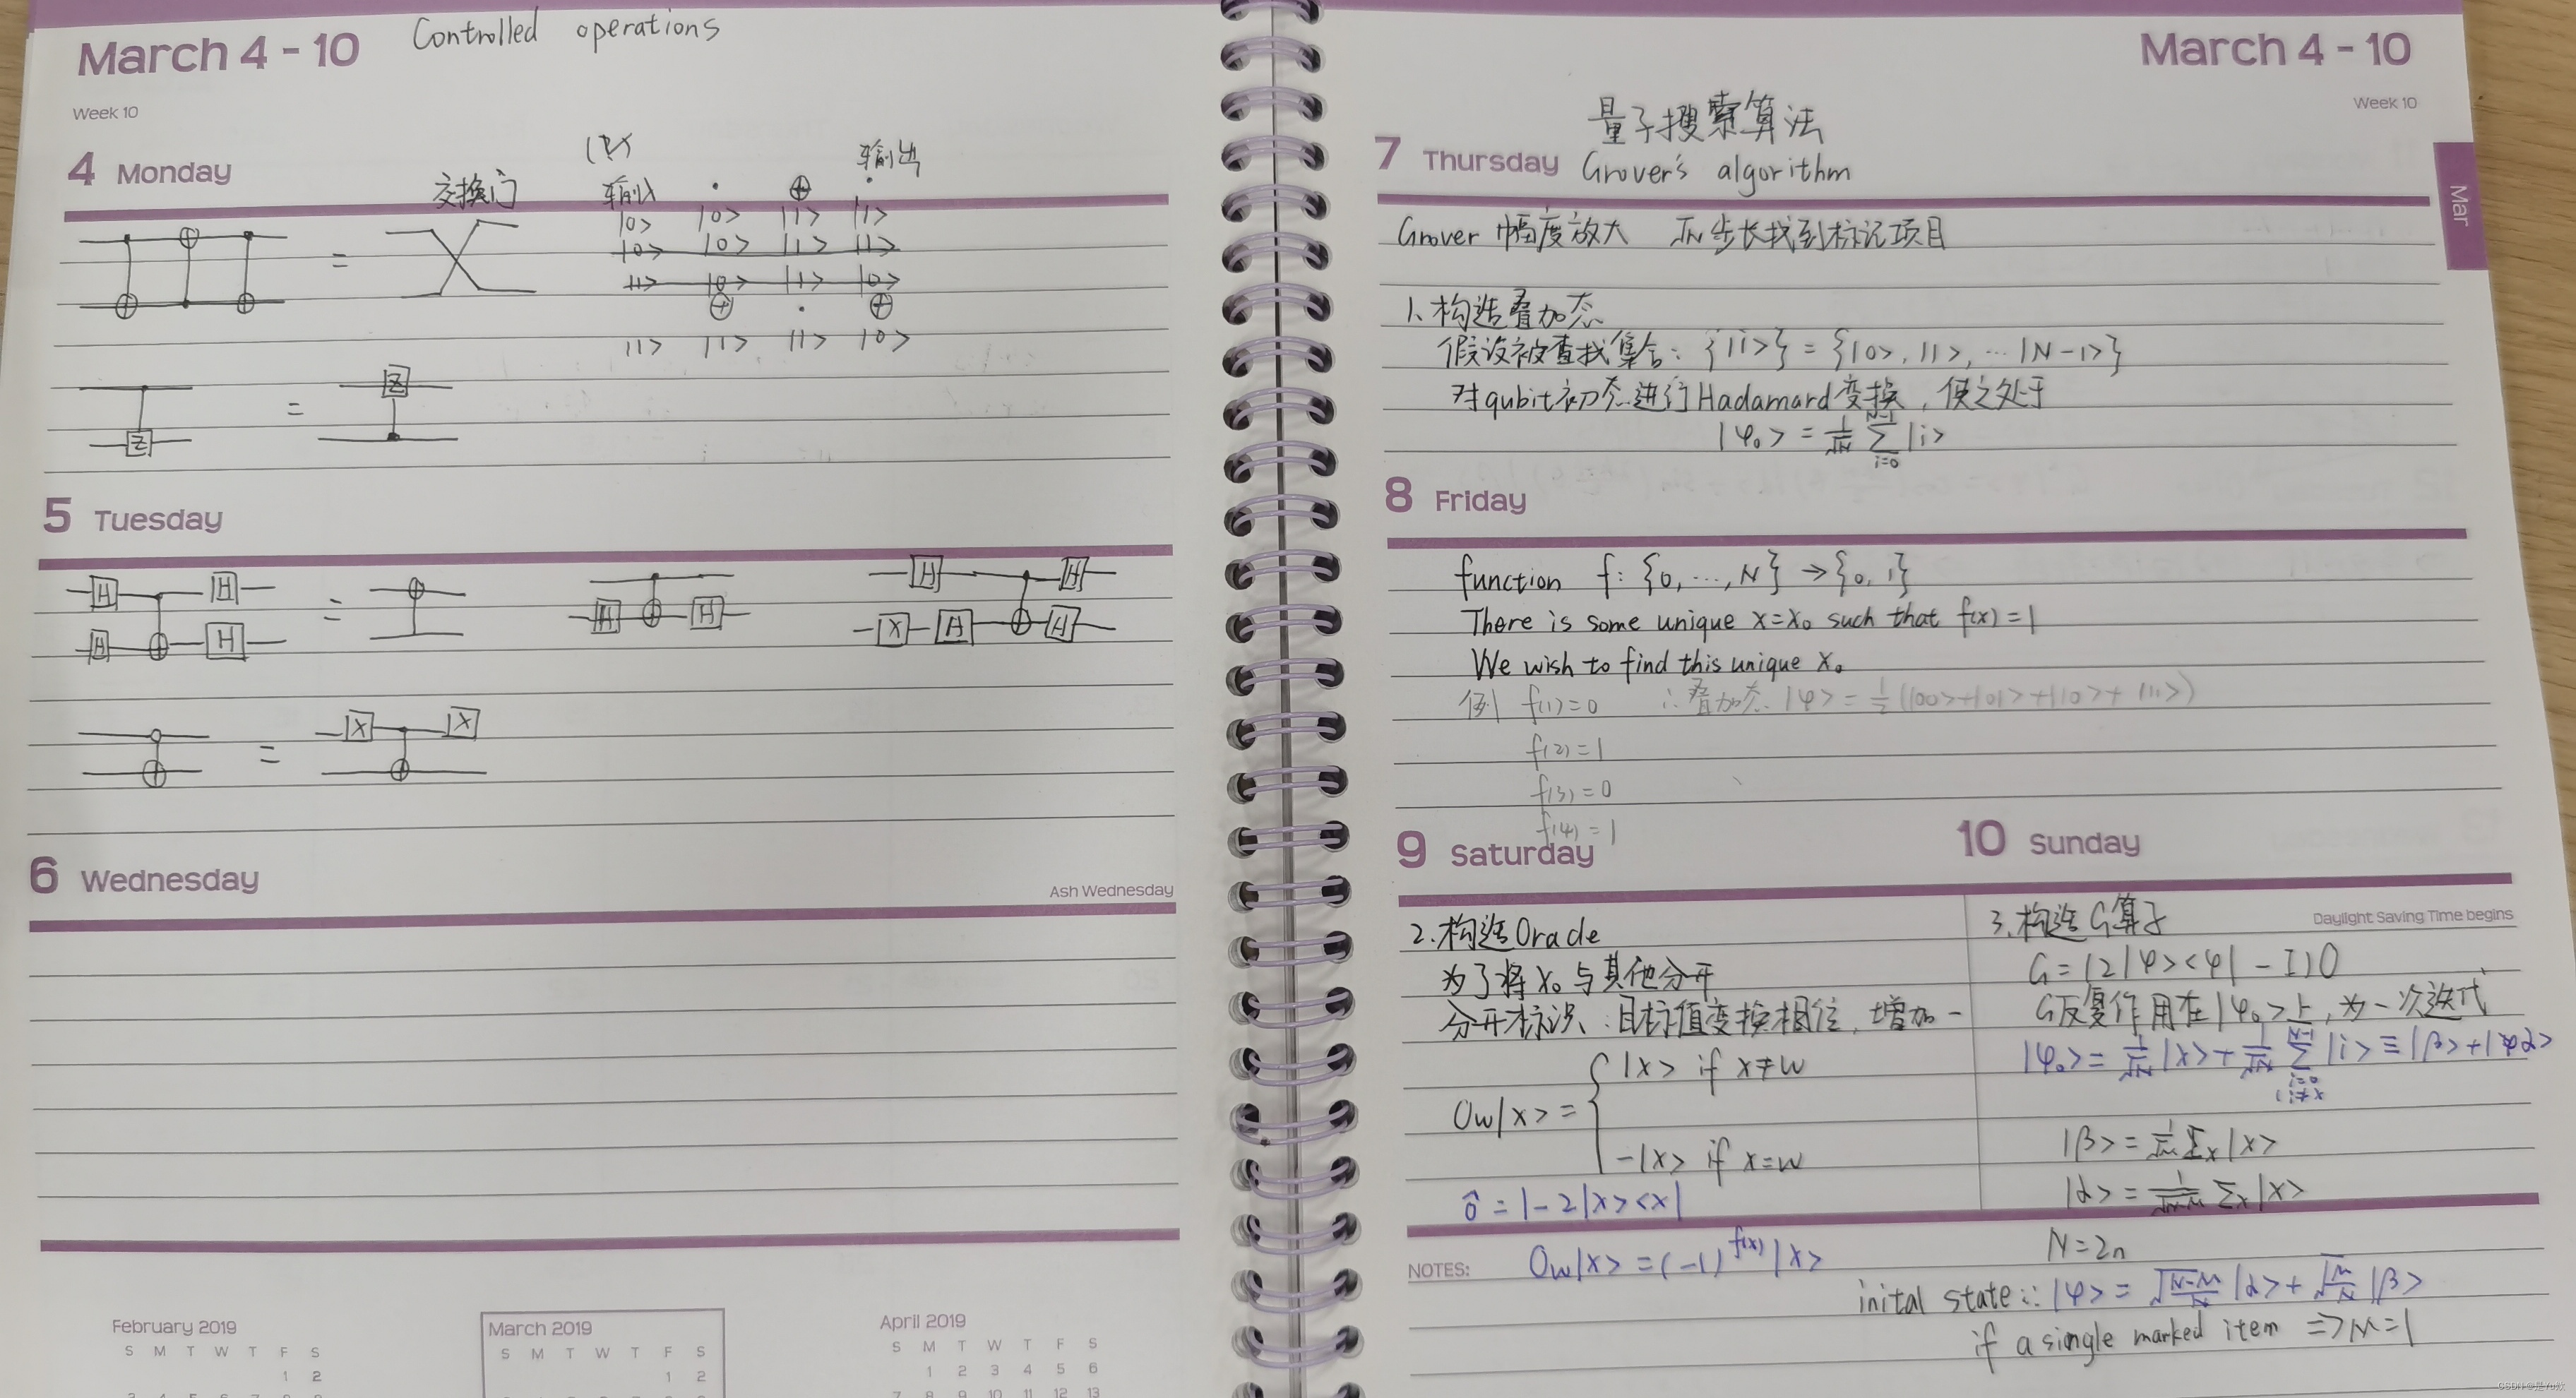 March 4 - 10 Controlled operations
Week 10
4 Monday
交换门
输入 · ⊕ 输出
|0> |0> |1> |1>
|0> |0> |1> |1>
|1> |0> |1> |0>
⊕ · ⊕
|1> |1> |1> |0>
=
Z = Z
5 Tuesday
H H = H H H H
H H X H H
= X X
6 Wednesday
Ash Wednesday
February 2019
S M T W T F S
1 2
March 2019
S M T W T F S
1 2
April 2019
S M T W T F S
1 2 3 4 5 6
7 8 9 10 11 12 13
March 4 - 10
Week 10
Mar
量子搜索算法
7 Thursday Grover's algorithm
Grover 幅度放大 √N 步长找到标记项目
1.构造叠加态
假设被查找集合:{|i>} = {|0>,|1>,…|N-1>}
对qubit初态进行Hadamard变换,使之处于
|φ₀> = 1/√N ∑_{i=0}^{N-1} |i>
8 Friday
function f: {0,…,N} → {0,1}
There is some unique x=x₀ such that f(x)=1
We wish to find this unique x₀
例 f(1)=0 ∴叠加态 |φ> = 1/2 (|00>+|01>+|10>+|11>)
f(2)=1
f(3)=0
f(4)=1
9 Saturday
2.构造Oracle
为了将x₀与其他分开
分开标识:目标值变换相位,增加一
Ow|x> = { |x> if x≠w
-|x> if x=w
ô = 1-2|x><x|
10 Sunday
Daylight Saving Time begins
3.构造G算子
G=(2|φ><φ| - I)O
G反复作用在|φ₀>上,为一次迭代
|φ₀> = 1/√N |x> + 1/√N ∑_{i=0}^{N-1} |i> ≡ |β>+|α>
(i≠x
|β> = 1/√M ∑x|x>
|α> = 1/√N-M ∑x|x>
NOTES: Ow|x> = (-1)^{f(x)} |x>
N=2n
inital state: |φ> = √(N-M)/N |α> + √M/N |β>
if a single marked item => M=1
CSDN @是Yu欸